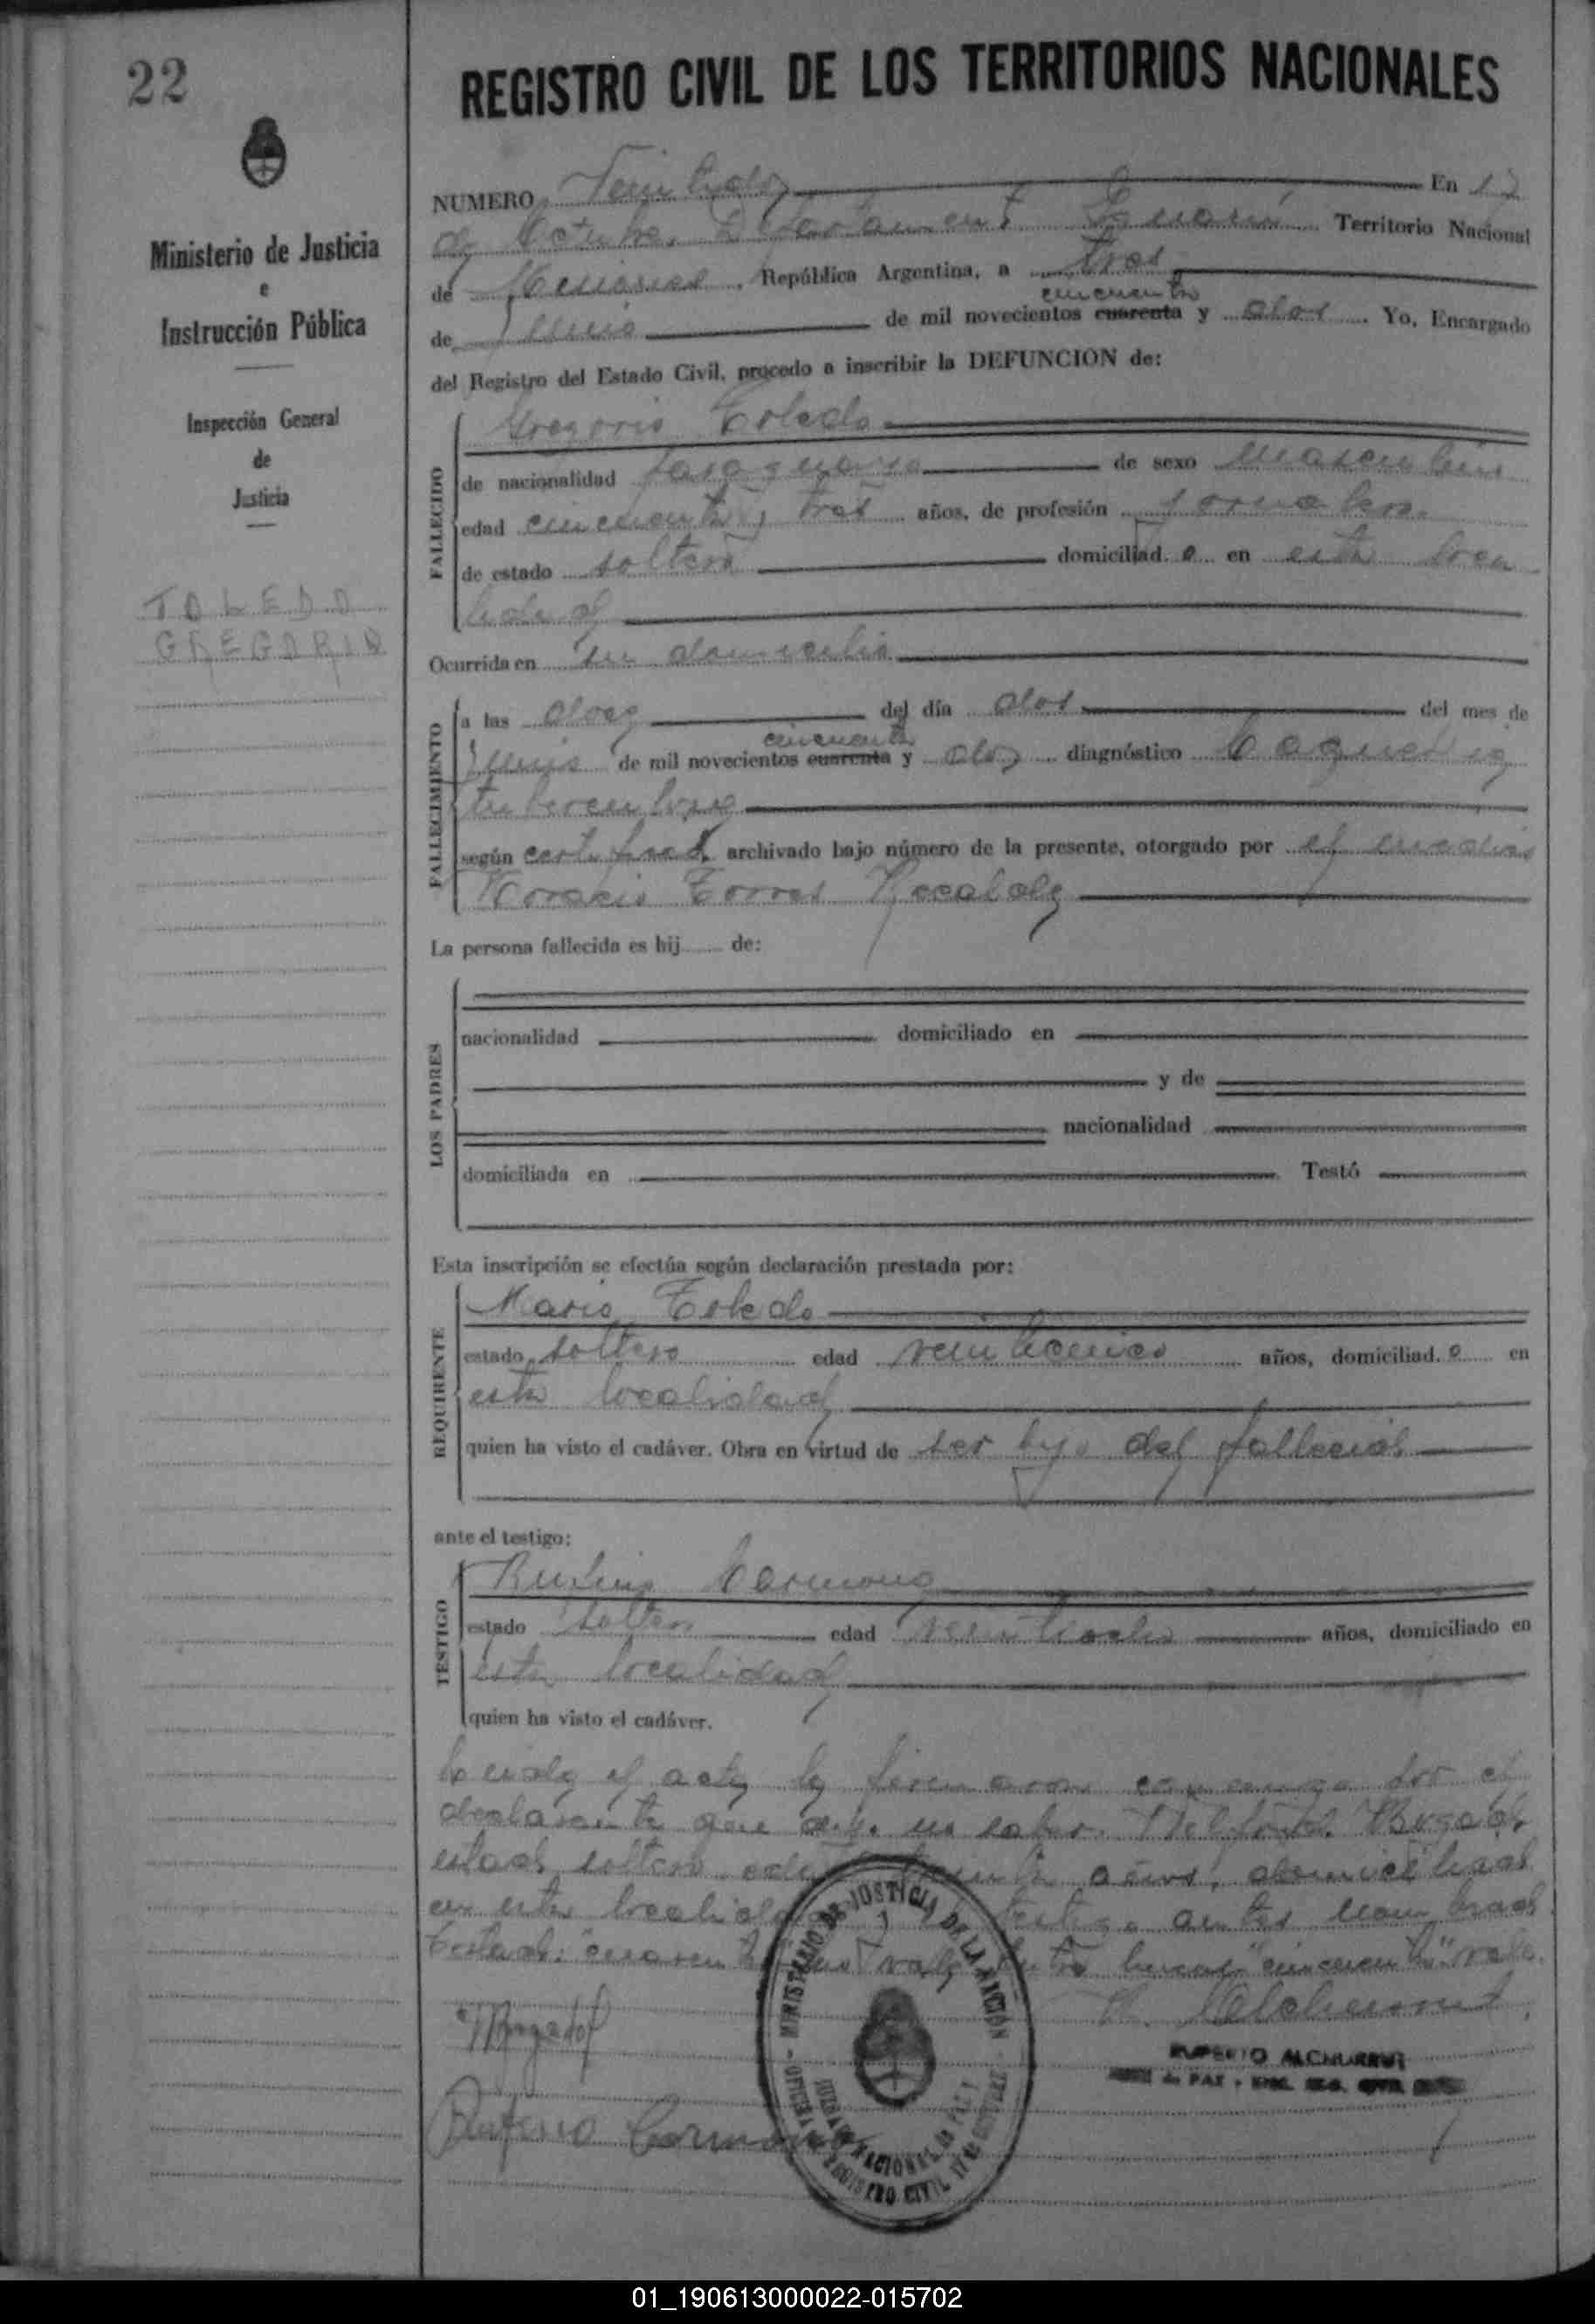 22
REGISTRO CIVIL DE LOS TERRITORIOS NACIONALES
Ministerio de Justicia
e
Instrucción Pública
Inspección General
de
Justicia
TOLEDO
GREGORIO
NUMERO Veintidos En 17
de Octubre, Territorio Nacional
de Misiones, República Argentina, a tres
cincuenta
de Junio de mil novecientos cuarenta y dos. Yo, Encargado
del Registro del Estado Civil, procedo a inscribir la DEFUNCION de:
FALLECIDO
Gregorio Toledo
de nacionalidad paraguaya de sexo masculino
edad cincuenta y tres años, de profesión jornalero
de estado soltero domiciliado en esta loca
lidad
Ocurrida en su domicilio
FALLECIMIENTO
a las doce del día dos del mes de
cincuenta
Junio de mil novecientos cuarenta y dos diagnóstico Caquexia
tuberculosa
según certificado archivado bajo número de la presente, otorgado por el medico
Horacio Torres
La persona fallecida es hij de:
LOS PADRES
nacionalidad domiciliado en
y de
nacionalidad
domiciliada en Testó
Esta inscripción se efectúa según declaración prestada por:
REQUIRENTE
Mario Toledo
estado soltero edad veinticinco años, domiciliado en
esta localidad
quien ha visto el cadáver. Obra en virtud de ser hijo del fallecido
ante el testigo:
TESTIGO
Rufino Carmona
estado soltero edad veintiocho años, domiciliado en
esta localidad
quien ha visto el cadáver.
Leida el acta la firmaron conmigo por el
declarante que dijo no saber
estado soltero años, domiciliado
en esta localidad testigo antes nombrado
Testado: "cuarenta" no vale Entre lineas "cincuenta" vale.
RUPERTO ALCHURRUT
Rufino Carmona
MINISTERIO DE JUSTICIA DE LA NACIÓN
JUZGADO NACIONAL DE PAZ
OFICINA DE REGISTRO CIVIL 17 DE OCTUBRE
01_190613000022-015702